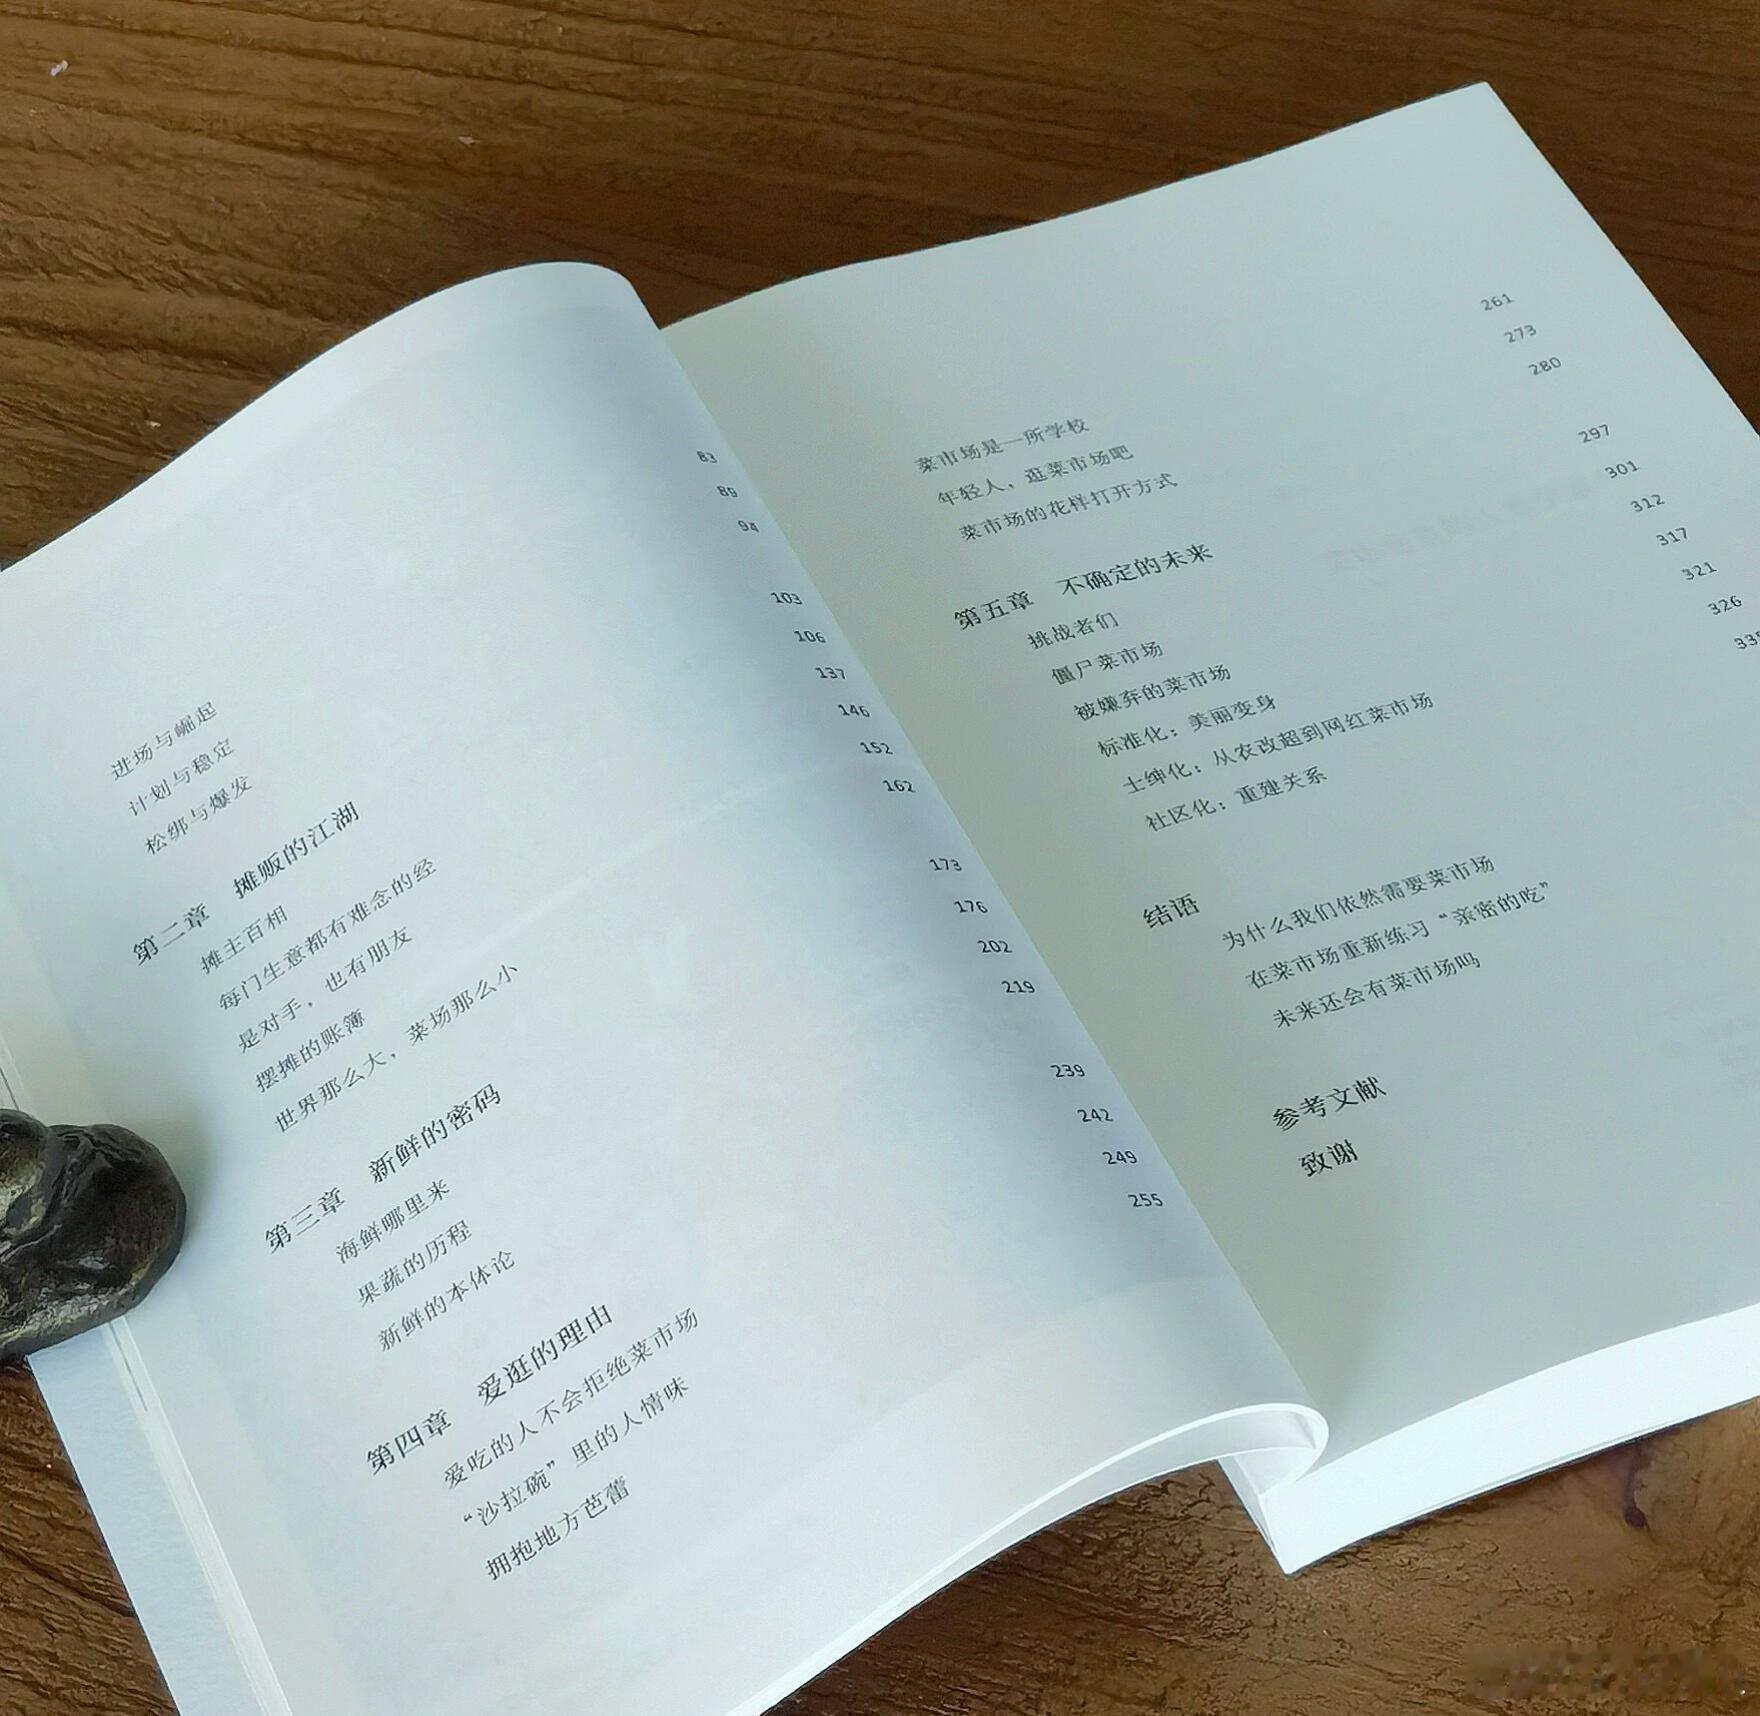 进场与崛起 83
计划与稳定 89
松绑与爆发 94
第二章 摊贩的江湖 103
摊主百相 106
每门生意都有难念的经 137
是对手，也有朋友 146
摆摊的账簿 152
世界那么大，菜场那么小 162
第三章 新鲜的密码 173
海鲜哪里来 176
果蔬的历程 202
新鲜的本体论 219
第四章 爱逛的理由 239
爱吃的人不会拒绝菜市场 242
“沙拉碗”里的人情味 249
拥抱地方芭蕾 255
菜市场是一所学校 261
年轻人，逛菜市场吧 273
菜市场的花样打开方式 280
第五章 不确定的未来 297
挑战者们 301
僵尸菜市场 312
被嫌弃的菜市场 317
标准化：美丽变身 321
士绅化：从农改超到网红菜市场 326
社区化：重建关系
结语
为什么我们依然需要菜市场
在菜市场重新练习“亲密的吃”
未来还会有菜市场吗
参考文献
致谢